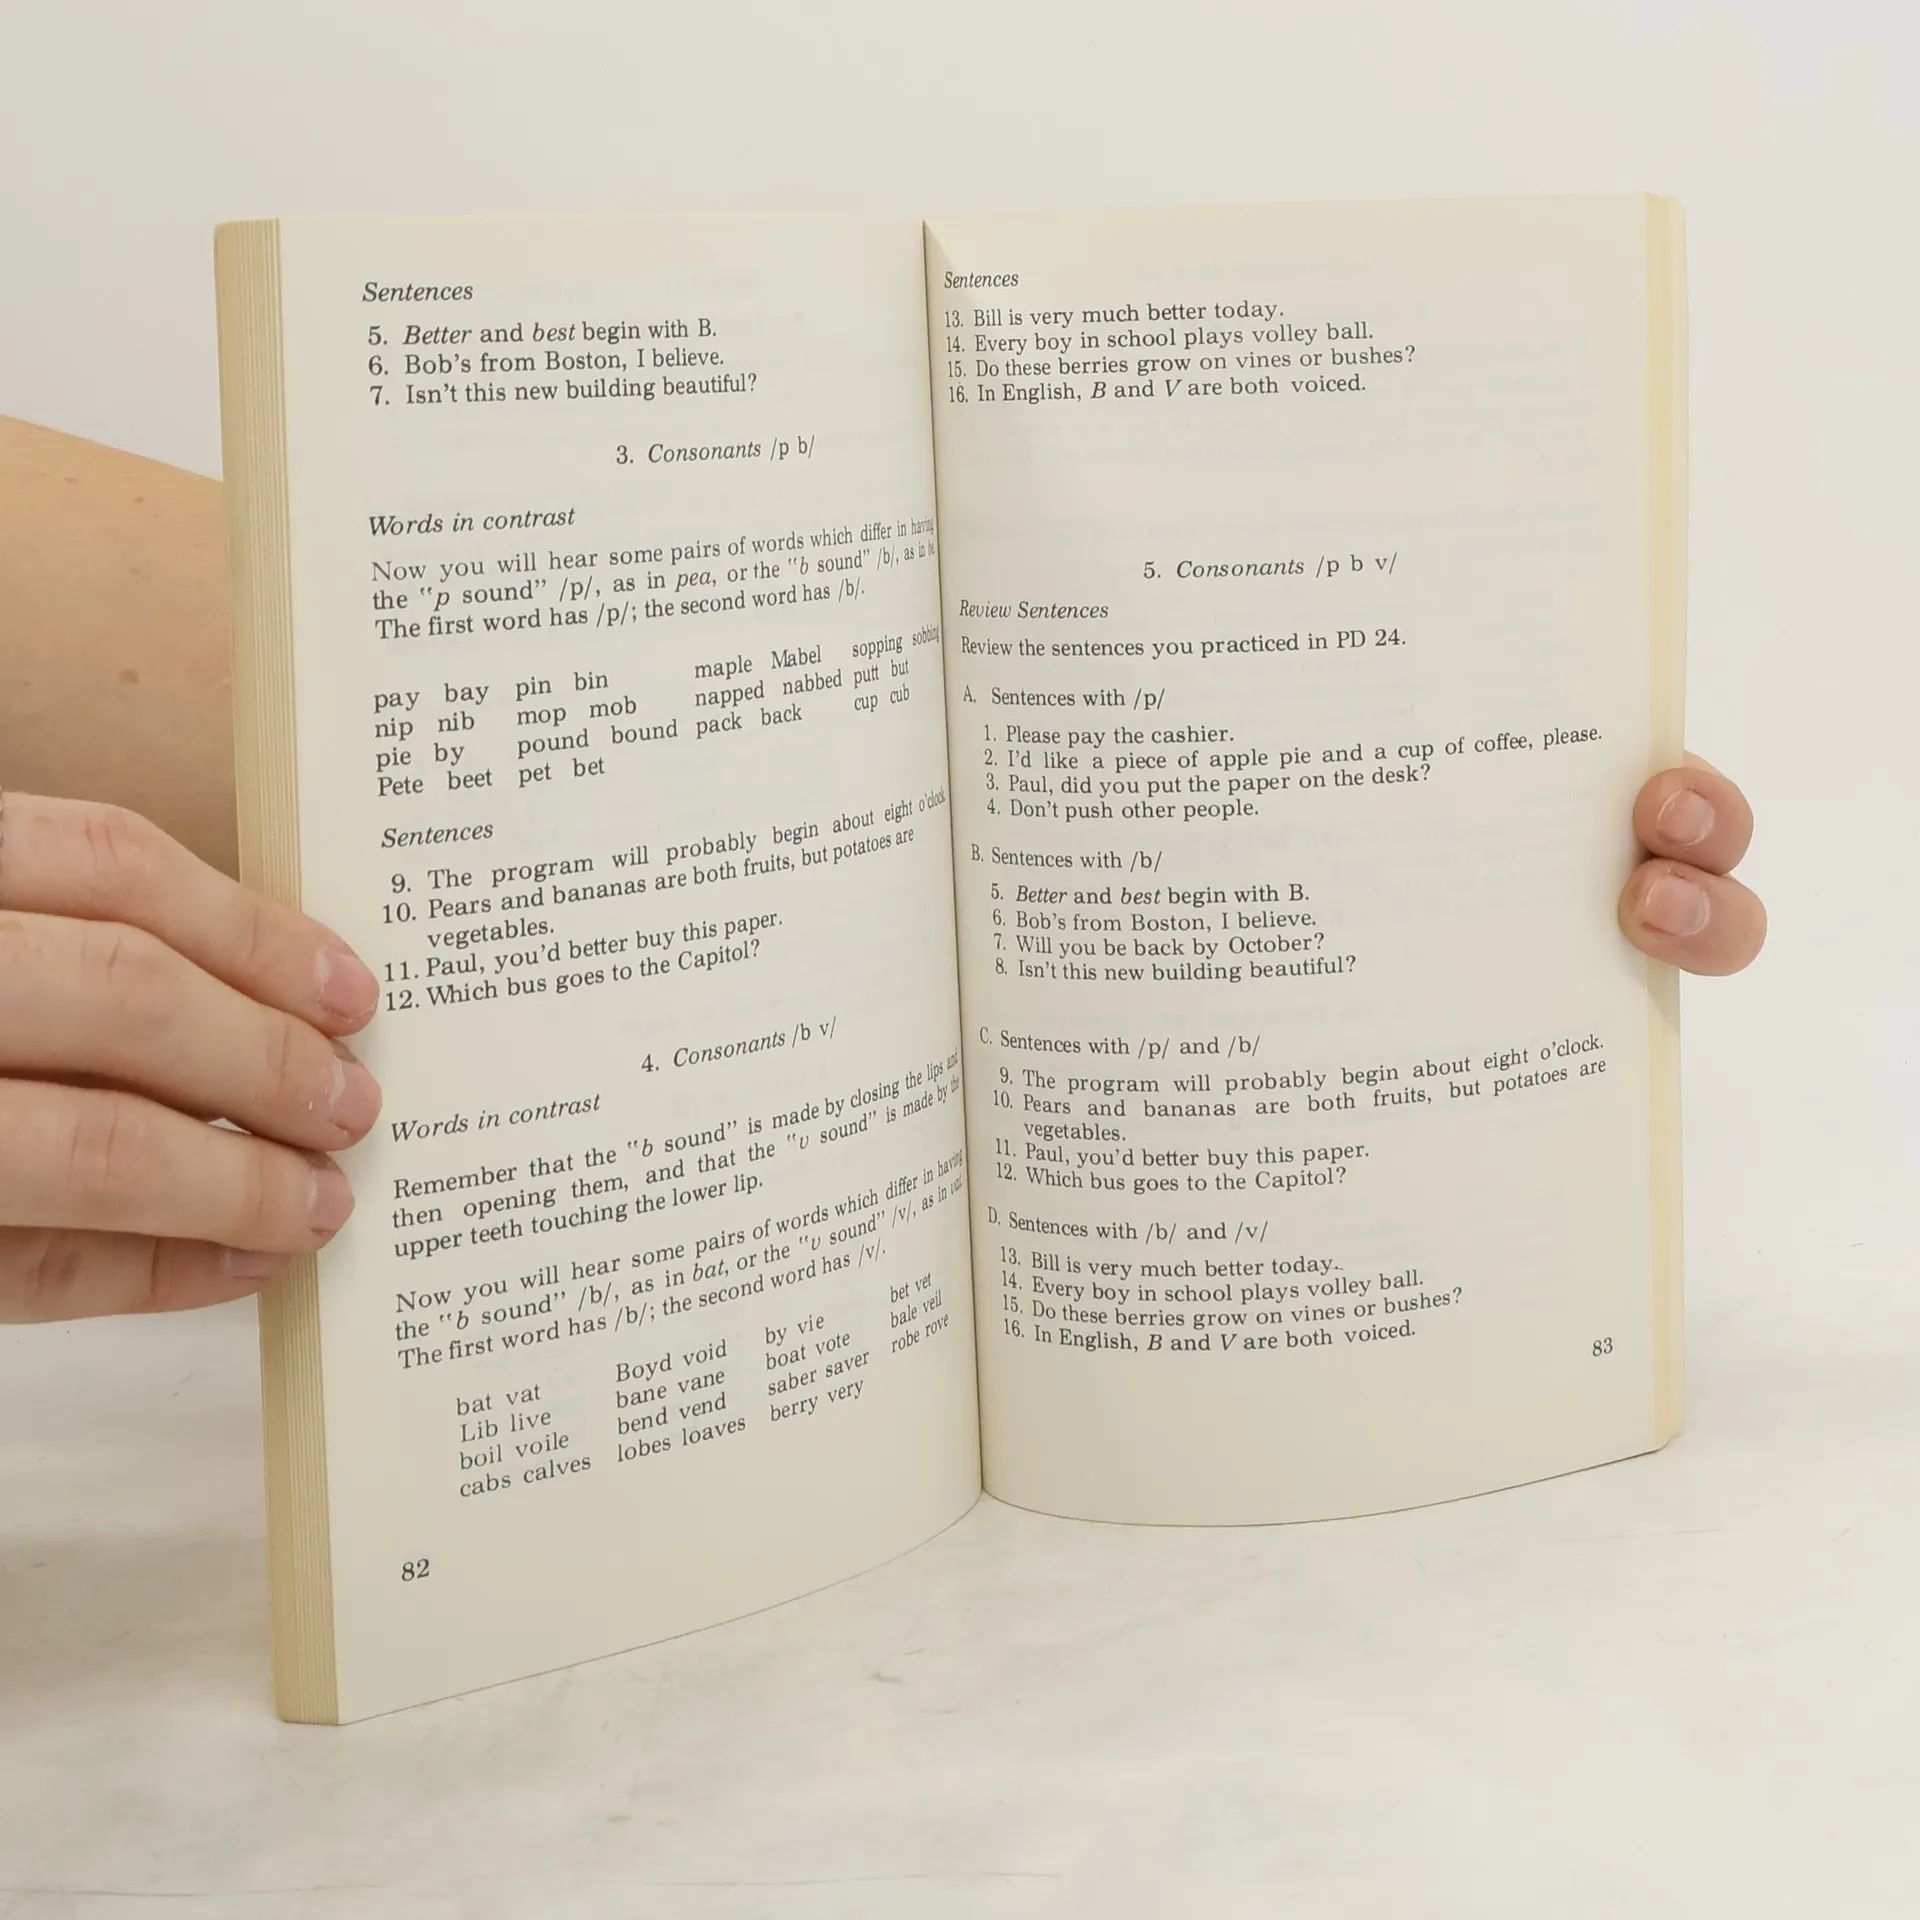 Sentences
5. Better and best begin with B.
6. Bob's from Boston, I believe.
7. Isn't this new building beautiful?
3. Consonants /p b/
Words in contrast
Now you will hear some pairs of words which differ in having
the "p sound" /p/, as in pea, or the "b sound" /b/, as in be.
The first word has /p/; the second word has /b/.
pay bay pin bin maple Mabel sopping sobbing
nip nib mop mob napped nabbed putt but
pie by pound bound pack back cup cub
Pete beet pet bet
Sentences
9. The program will probably begin about eight o'clock.
10. Pears and bananas are both fruits, but potatoes are
vegetables.
11. Paul, you'd better buy this paper.
12. Which bus goes to the Capitol?
4. Consonants /b v/
Words in contrast
Remember that the "b sound" is made by closing the lips and
then opening them, and that the "v sound" is made by the
upper teeth touching the lower lip.
Now you will hear some pairs of words which differ in having
the "b sound" /b/, as in bat, or the "v sound" /v/, as in vat.
The first word has /b/; the second word has /v/.
bat vat Boyd void by vie bet vet
Lib live bane vane boat vote bale veil
boil voile bend vend saber saver robe rove
cabs calves lobes loaves berry very
82
Sentences
13. Bill is very much better today.
14. Every boy in school plays volley ball.
15. Do these berries grow on vines or bushes?
16. In English, B and V are both voiced.
5. Consonants /p b v/
Review Sentences
Review the sentences you practiced in PD 24.
A. Sentences with /p/
1. Please pay the cashier.
2. I'd like a piece of apple pie and a cup of coffee, please.
3. Paul, did you put the paper on the desk?
4. Don't push other people.
B. Sentences with /b/
5. Better and best begin with B.
6. Bob's from Boston, I believe.
7. Will you be back by October?
8. Isn't this new building beautiful?
C. Sentences with /p/ and /b/
9. The program will probably begin about eight o'clock.
10. Pears and bananas are both fruits, but potatoes are
vegetables.
11. Paul, you'd better buy this paper.
12. Which bus goes to the Capitol?
D. Sentences with /b/ and /v/
13. Bill is very much better today.
14. Every boy in school plays volley ball.
15. Do these berries grow on vines or bushes?
16. In English, B and V are both voiced.
83